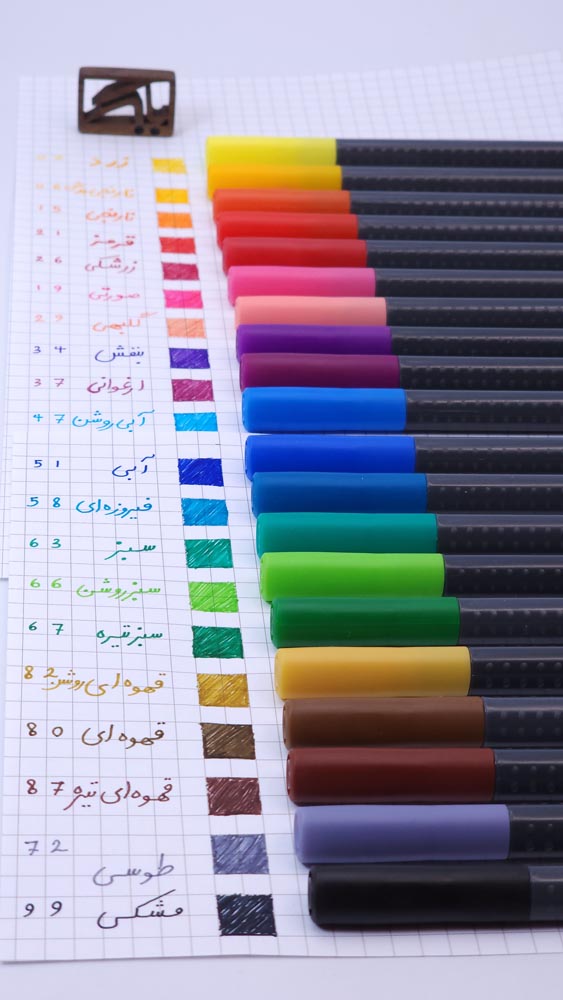 زرد
نارنجی
15
قرمز
21
زرشکی
26
صورتی
19
گلبهی
29
بنفش
34
ارغوانی
37
آبی روشن
47
آبی
51
فیروزه‌ای
58
سبز
63
سبز روشن
66
سبز تیره
67
قهوه‌ای روشن
82
قهوه‌ای
80
قهوه‌ای تیره
87
طوسی
72
مشکی
99